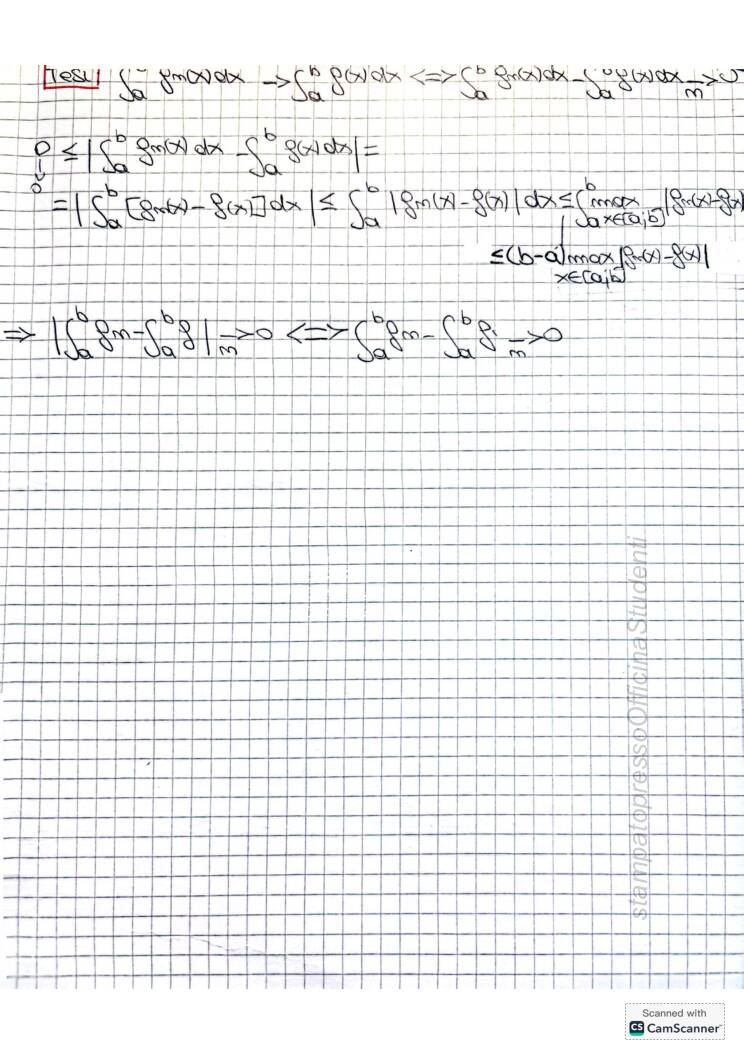 Tesi ∫ₐᵇ fn(x)dx → ∫ₐᵇ f(x)dx <=> ∫ₐᵇ fn(x)dx - ∫ₐᵇ f(x)dx →n 0
0 ≤ |∫ₐᵇ fn(x)dx - ∫ₐᵇ f(x)dx| =
↓
0
= |∫ₐᵇ [fn(x) - f(x)]dx| ≤ ∫ₐᵇ |fn(x) - f(x)|dx ≤ ∫ₐᵇ max x∈[a,b] |fn(x) - f(x)
≤ (b-a) max x∈[a,b] |fn(x) - f(x)|
=> |∫ₐᵇ fn - ∫ₐᵇ f| →n 0 <=> ∫ₐᵇ fn - ∫ₐᵇ f →n 0
stampatopressoOfficinaStudenti
Scanned with
CS CamScanner